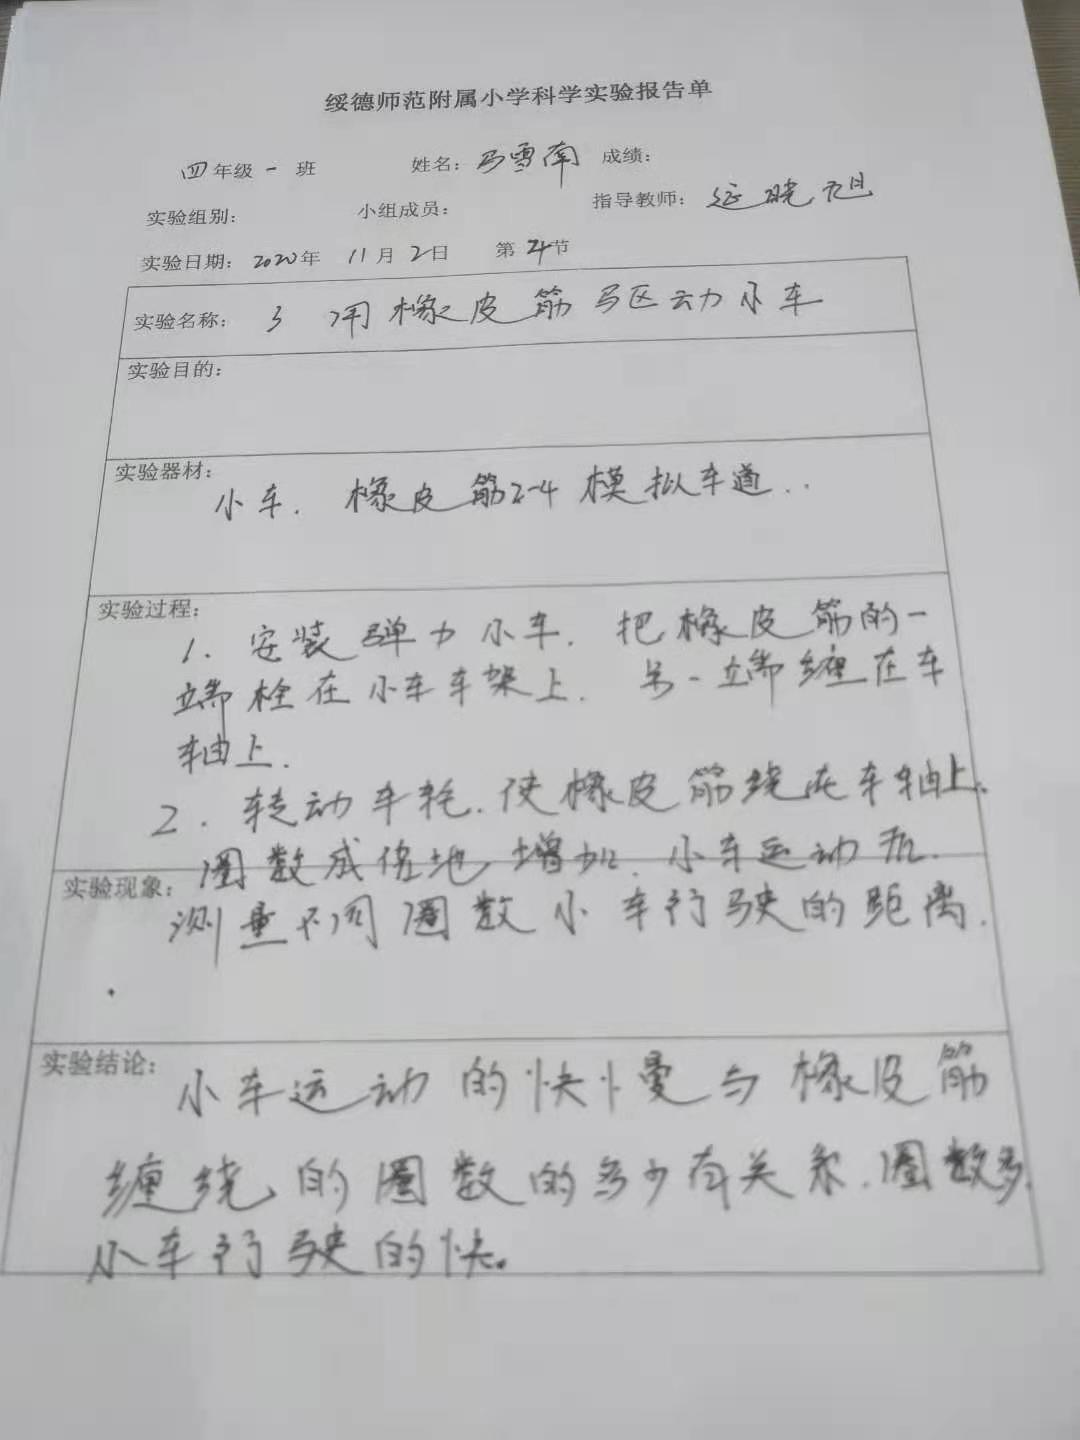 绥德师范附属小学科学实验报告单
四年级 一 班 姓名：马雪南 成绩：
实验组别： 小组成员： 指导教师：延晓旭
实验日期：2020年 11月 2日 第 4节
实验名称：3 用橡皮筋驱动小车
实验目的：
实验器材：
小车. 橡皮筋2-4 模拟车道..
实验过程：
1. 安装弹力小车. 把橡皮筋的一
端栓在小车车架上. 另一端缠在车
轴上.
2. 转动车轮.使橡皮筋绕在车轴上.
圈数成倍地增加. 小车运动后.
实验现象：
测量不同圈数小车行驶的距离.
实验结论：
小车运动的快慢与橡皮筋
缠绕的圈数的多少有关系.圈数多.
小车行驶的快。